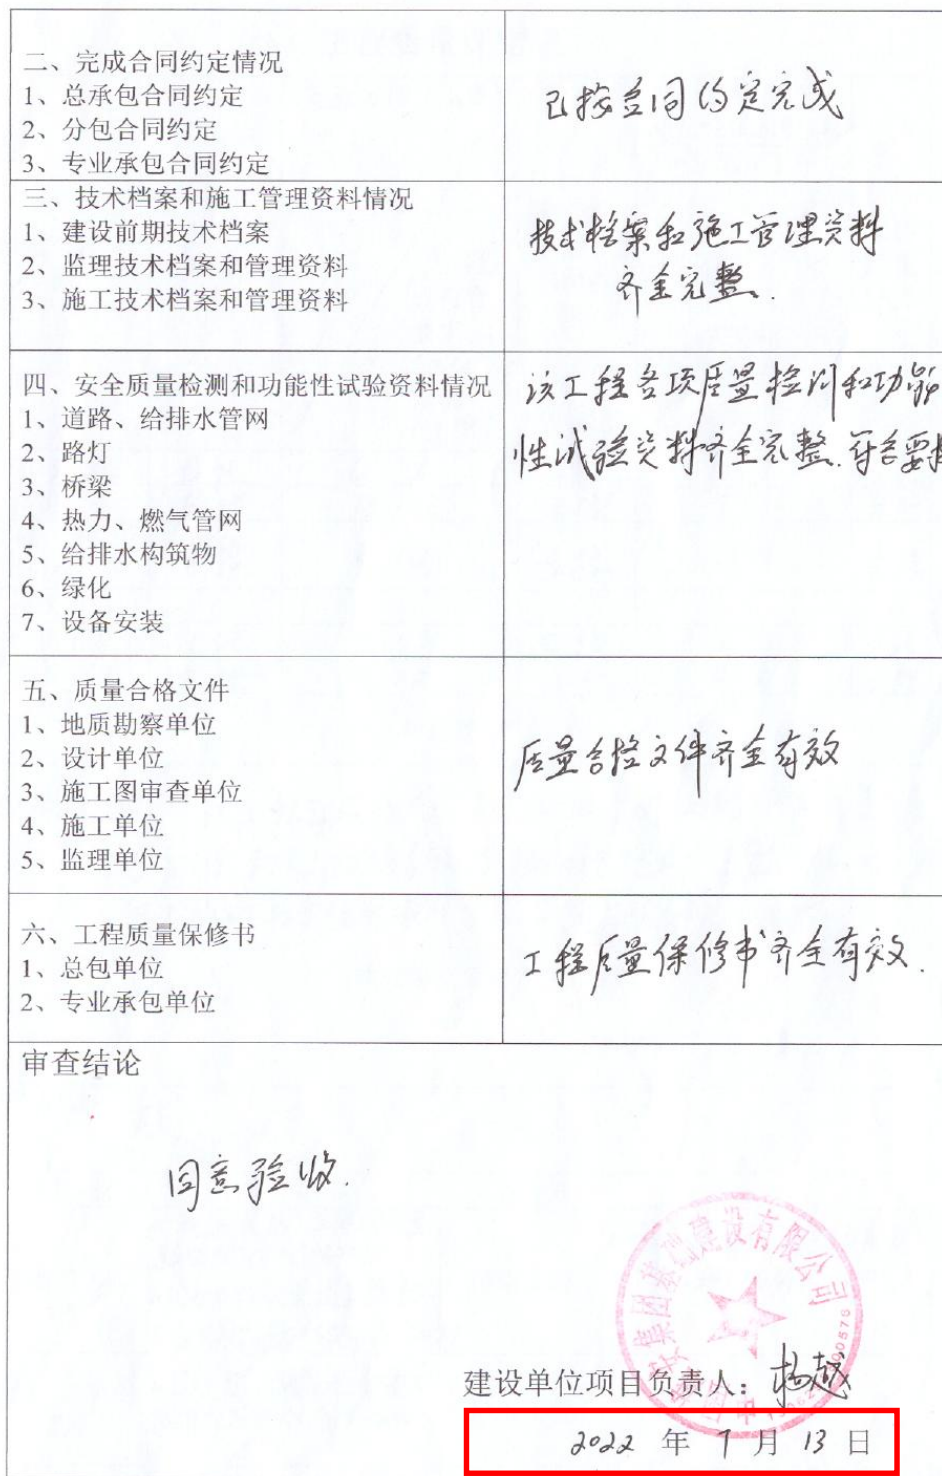 二、完成合同约定情况
1、总承包合同约定
2、分包合同约定
3、专业承包合同约定
已按合同约定完成
三、技术档案和施工管理资料情况
1、建设前期技术档案
2、监理技术档案和管理资料
3、施工技术档案和管理资料
技术档案和施工管理资料
齐全完整.
四、安全质量检测和功能性试验资料情况
1、道路、给排水管网
2、路灯
3、桥梁
4、热力、燃气管网
5、给排水构筑物
6、绿化
7、设备安装
该工程各项质量检测和功能
性试验资料齐全完整.符合要求
五、质量合格文件
1、地质勘察单位
2、设计单位
3、施工图审查单位
4、施工单位
5、监理单位
质量合格文件齐全有效
六、工程质量保修书
1、总包单位
2、专业承包单位
工程质量保修书齐全有效.
审查结论
同意验收.
集团基础建设有限公司
建设单位项目负责人：杨越
2022 年 7 月 13 日